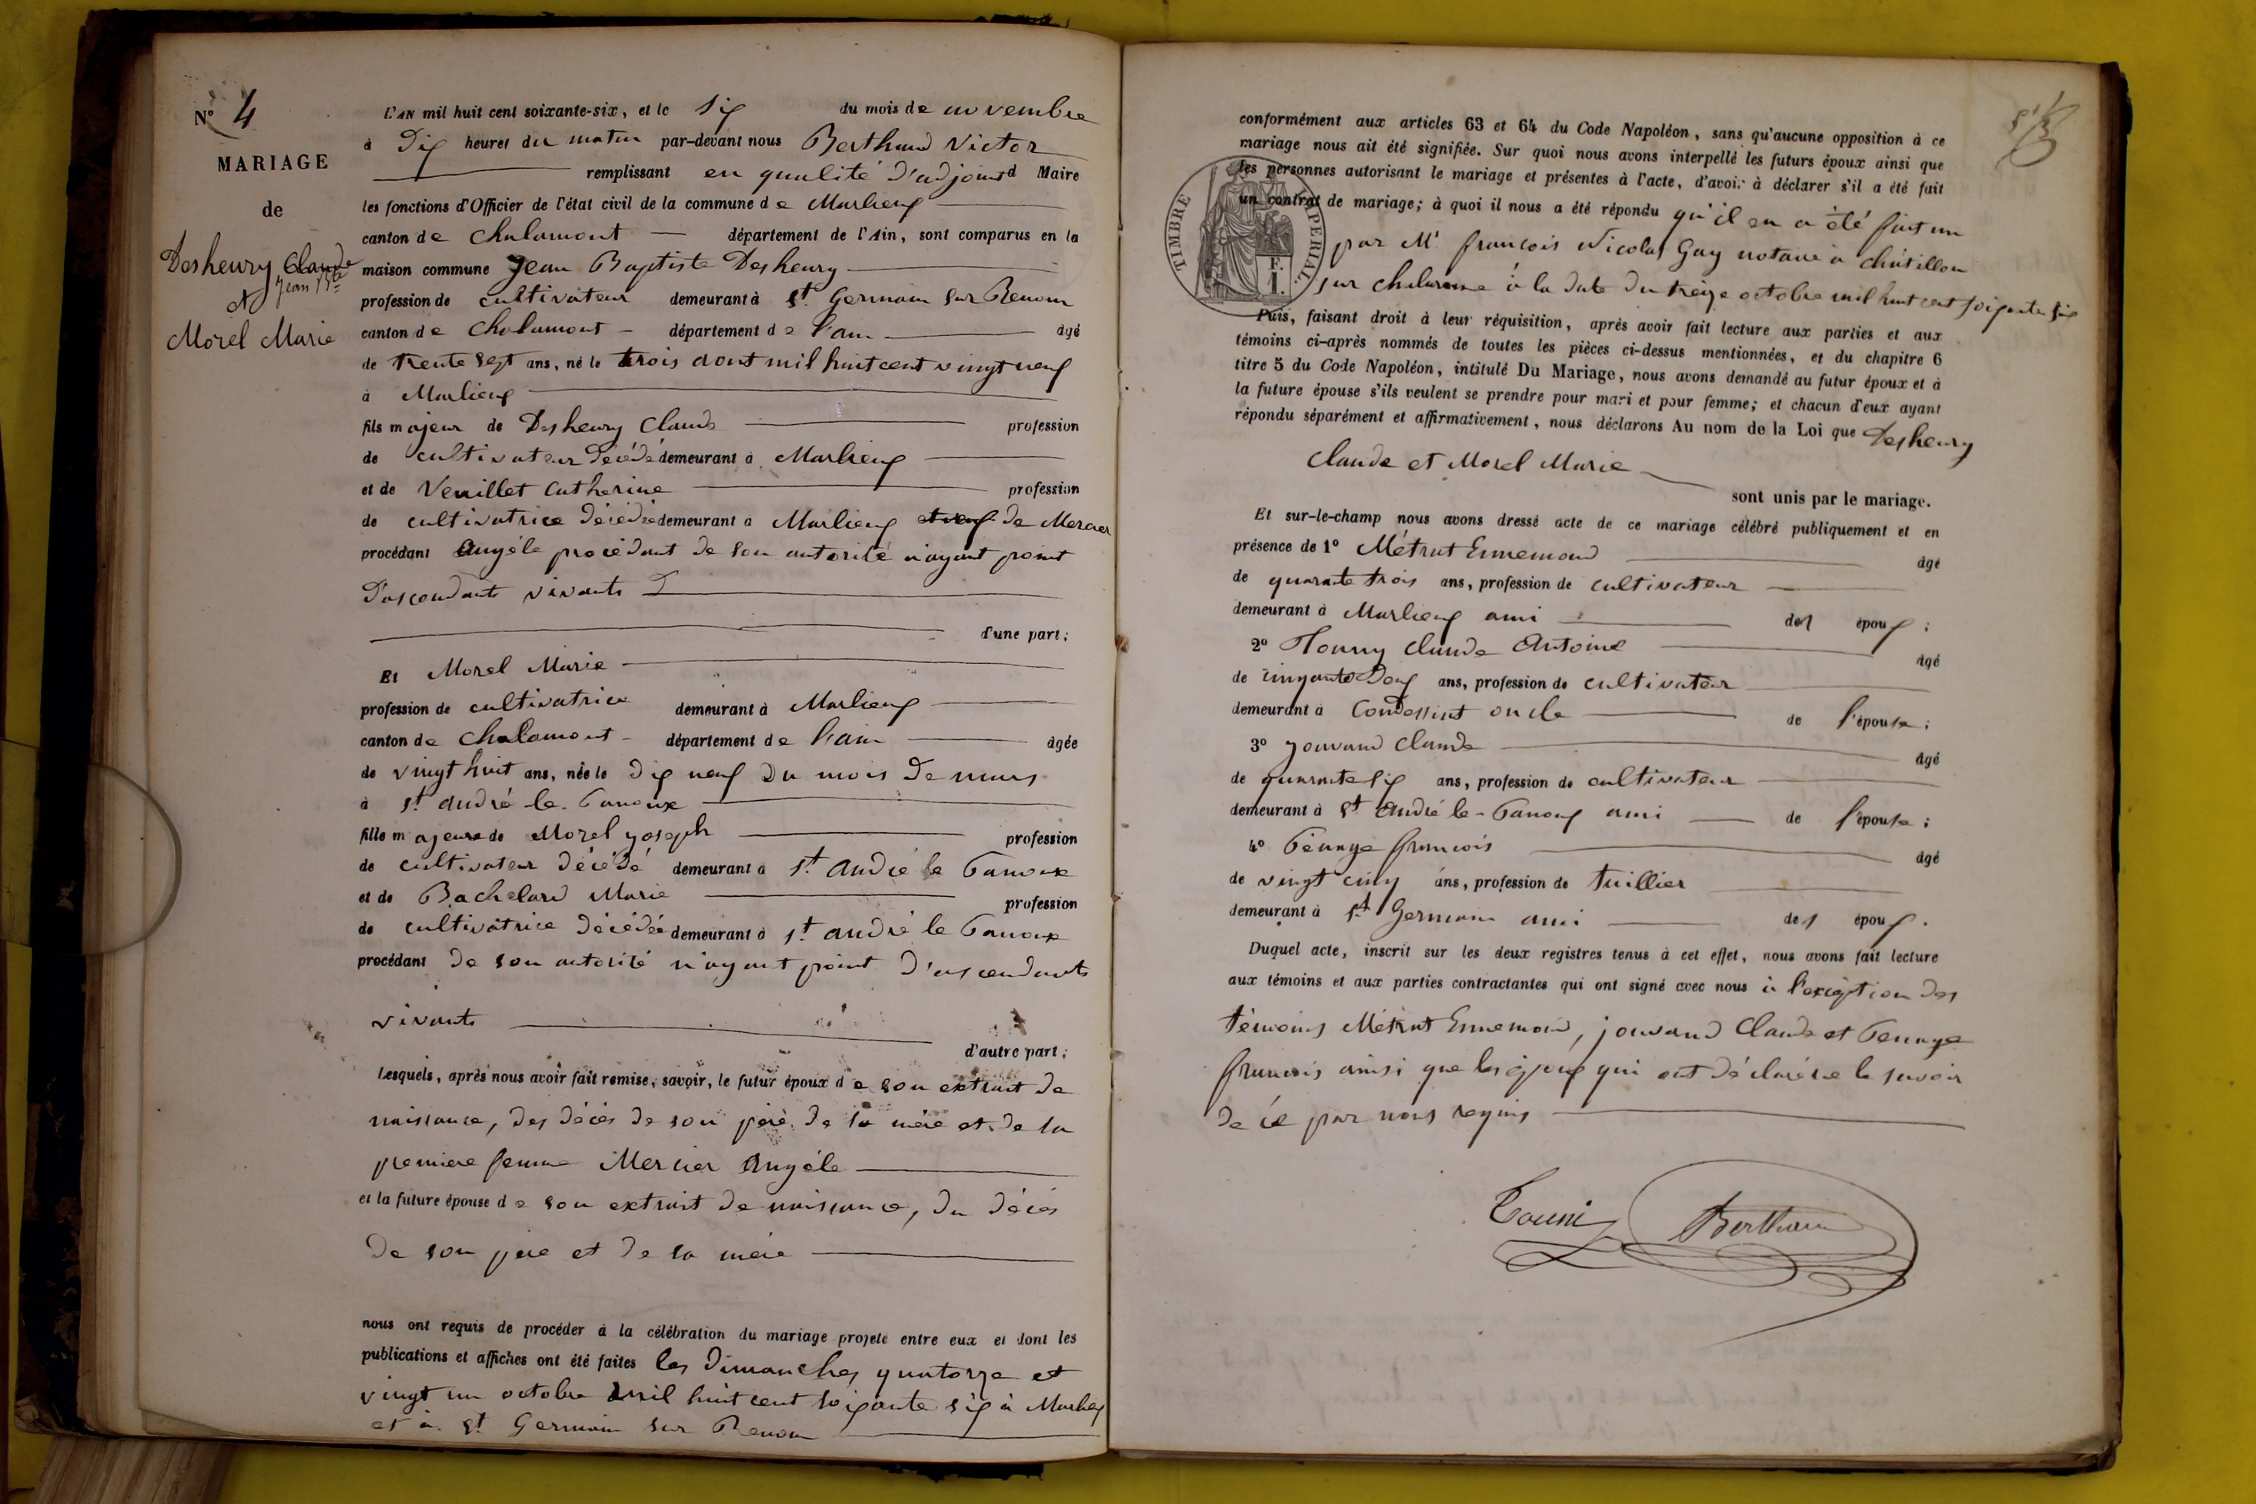 N° 4
MARIAGE
de
Desheury Claude
Jean Bte
et
Morel Marie
L'AN mil huit cent soixante-six, et le Six du mois de novembre
à Dix heures du matin par-devant nous Berthaud Victor
remplissant en qualité d'adjoint d Maire
les fonctions d'Officier de l'état civil de la commune de Marlieux
canton de Chalamont département de l'Ain, sont comparus en la
maison commune Jean Baptiste Desheury
profession de cultivateur demeurant à St Germain sur Renom
canton de Chalamont département de l'ain âgé
de trente sept ans, né le trois aout mil huit cent vingt neuf
à Marlieux
fils majeur de Desheury Claude profession
de cultivateur décédé demeurant à Marlieux
et de Veuillet Catherine profession
de cultivatrice décédée demeurant à Marlieux et veuf de Mercier
procédant Angéle procédant de son autorité n'ayant point
d'ascendants vivants
d'une part;
Et Morel Marie
profession de cultivatrice demeurant à Marlieux
canton de Chalamont département de l'ain âgée
de vingt huit ans, née le dix neuf du mois de mars
à St andré le Panoux
fille majeure de Morel Joseph profession
de cultivateur décédé demeurant à St André le Panoux
et de Bachelard Marie profession
de cultivatrice décédée demeurant à St andré le Panoux
procédant de son autorité n'ayant point d'ascendants
vivants
d'autre part;
Lesquels, après nous avoir fait remise, savoir, le futur époux de son extrait de
naissance, des décès de son père, de sa mère et de sa
premiere femme Mercier Angéle
et la future épouse de son extrait de naissance, du décès
de son père et de sa mère
nous ont requis de procéder à la célébration du mariage projeté entre eux et dont les
publications et affiches ont été faites les dimanches quatorze et
vingt un octobre mil huit cent soixante six à Marlieux
et à St Germain sur Renom
conformément aux articles 63 et 64 du Code Napoléon, sans qu'aucune opposition à ce
mariage nous ait été signifiée. Sur quoi nous avons interpellé les futurs époux ainsi que
les personnes autorisant le mariage et présentes à l'acte, d'avoir à déclarer s'il a été fait
un contrat de mariage; à quoi il nous a été répondu qu'il en a été fait un
par Mr francois Nicolas Gay notaire à Chatillon
sur chalaronne à la date du treize octobre mil huit cent soixante six
TIMBRE IMPERIAL
1 F.
Puis, faisant droit à leur réquisition, après avoir fait lecture aux parties et aux
témoins ci-après nommés de toutes les pièces ci-dessus mentionnées, et du chapitre 6
titre 5 du Code Napoléon, intitulé Du Mariage, nous avons demandé au futur époux et à
la future épouse s'ils veulent se prendre pour mari et pour femme; et chacun d'eux ayant
répondu séparément et affirmativement, nous déclarons Au nom de la Loi que Desheury
Claude et Morel Marie
sont unis par le mariage.
Et sur-le-champ nous avons dressé acte de ce mariage célébré publiquement et en
présence de 1° Métrat Ennemond âgé
de quarante trois ans, profession de cultivateur
demeurant à Marlieux ami des époux;
2° Thonny Claude Antoine âgé
de cinquante Deux ans, profession de cultivateur
demeurant à Condessiat oncle de l'épouse;
3° Jouvand Claude âgé
de quarante six ans, profession de cultivateur
demeurant à St André le-Panoux ami de l'épouse;
4° Pénage francois âgé
de vingt cinq ans, profession de tuillier
demeurant à St Germain ami des époux.
Duquel acte, inscrit sur les deux registres tenus à cet effet, nous avons fait lecture
aux témoins et aux parties contractantes qui ont signé avec nous à l'exception des
témoins Métrat Ennemond, jouvand Claude et Penage
francois ainsi que les époux qui ont déclaré ne le savoir
de ce par nous requis
Touni Berthaud